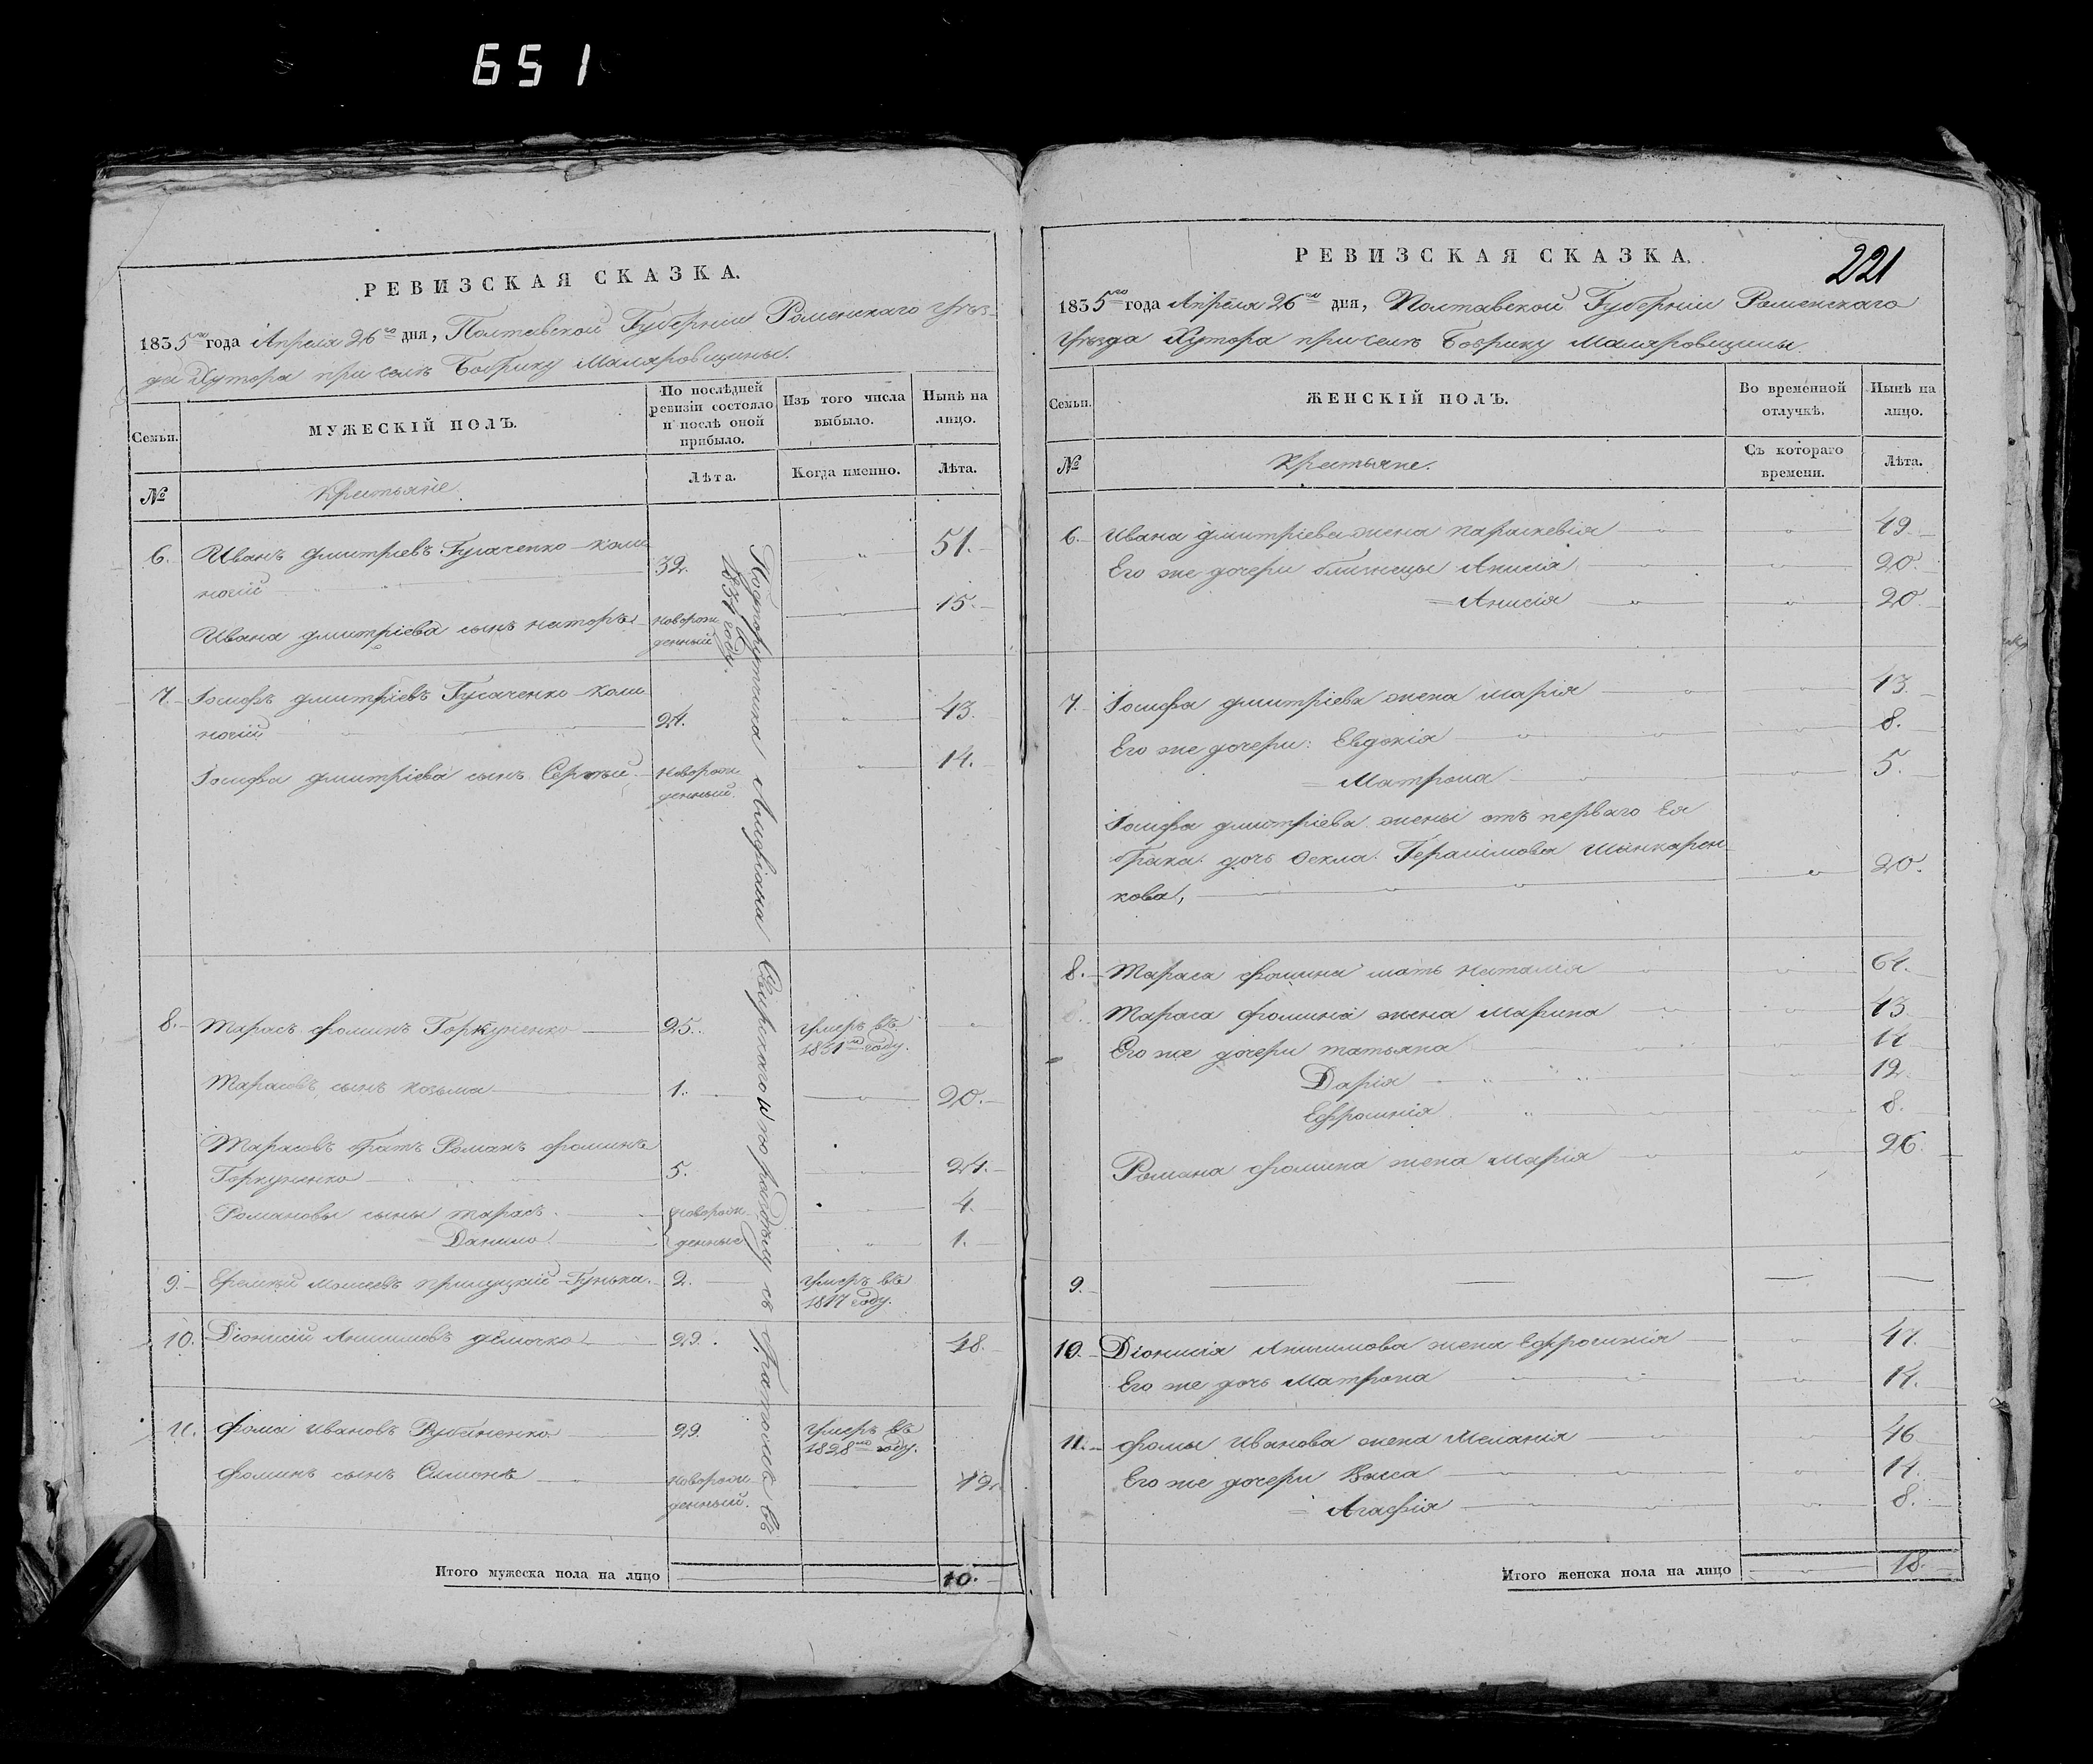 651
РЕВИЗСКАЯ СКАЗКА.
1835го года Апреля 26го дня, Полтавской Губерніи Роменскаго Уѣз-
да Хутора при селѣ Бобрику Маляровщины.
Семьи.
МУЖЕСКІЙ ПОЛЪ.
По послѣдней
ревизіи состояло
и послѣ оной
прибыло.
Изъ того числа
выбыло.
Нынѣ на
лицо.
№
Крестьяне
Лѣта.
Когда именно.
Лѣта.
6. Иванъ Дмитріевъ 32. 51.
Ивана Дмитріева сынъ новорож 15.
денный
7. Іосифъ Дмитріевъ 24. 43.
Іосифа Дмитріева сынъ Сергѣй новорож 14.
денный.
8. Тарасъ Фоминъ 25. умеръ въ
1831м году.
Тарасовъ сынъ Козьма 1. 20.
Тарасовъ братъ Романъ Фоминъ
5. 24.
Романовы сыны Тарасъ новорож 4.
Данило денные 1.
9. Еремѣй Моисеевъ 2. умеръ въ
1817 году.
10. Діонисій Анисимовъ 29. 48.
11. Фома Ивановъ 29. умеръ въ
1828мъ году.
Фоминъ сынъ Симонъ новорож 12.
денный.
въ
1834 году.
Итого мужеска пола на лицо 10.
РЕВИЗСКАЯ СКАЗКА.
221
1835го года Апреля 26го дня, Полтавской Губерніи Роменскаго
Уѣзда Хутора при селѣ Бобрику Маляровщины.
Семьи.
ЖЕНСКІЙ ПОЛЪ.
Во временной
отлучкѣ.
Нынѣ на
лицо.
№
Крестьяне.
Съ котораго
времени.
Лѣта.
6. Ивана Дмитріева жена Параскевія 49.
Его же дочери близнецы Анисія 20.
Анисія 20
7. Іосифа Дмитріева жена Марія 43.
Его же дочери: Евдокія 8.
Матрона 5.
Іосифа Дмитріева жены отъ перваго ея
брака дочь Ѳекла Герасимова Шинкарен
кова, 20.
8. Тараса Фомина мать Наталія 64.
Тараса Фомина жена Марина 43.
Его же дочери Татьяна 14
Дарія 12.
Ефросинія 8.
Романа Фомина жена Марія 26.
9.
10. Діонисія Анисимова жена Ефросинія 47.
Его же дочь Матрона 14.
11. Фомы Иванова жена Меланія 46
Его же дочери Васса 14.
Агафія 8.
Итого женска пола на лицо 18.